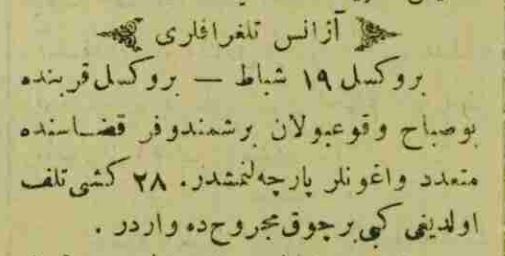 آژانس تلغرافلری
بروكسل ١٩ شباط — بروكسل قربنده
بوصباح وقوعبولان برشمندوفر قضاسنده
متعدد واغونلر پارچه‌لنمشدر. ٢٨ كشى تلف
اولدیغى كبى برچوق مجروح ده واردر .